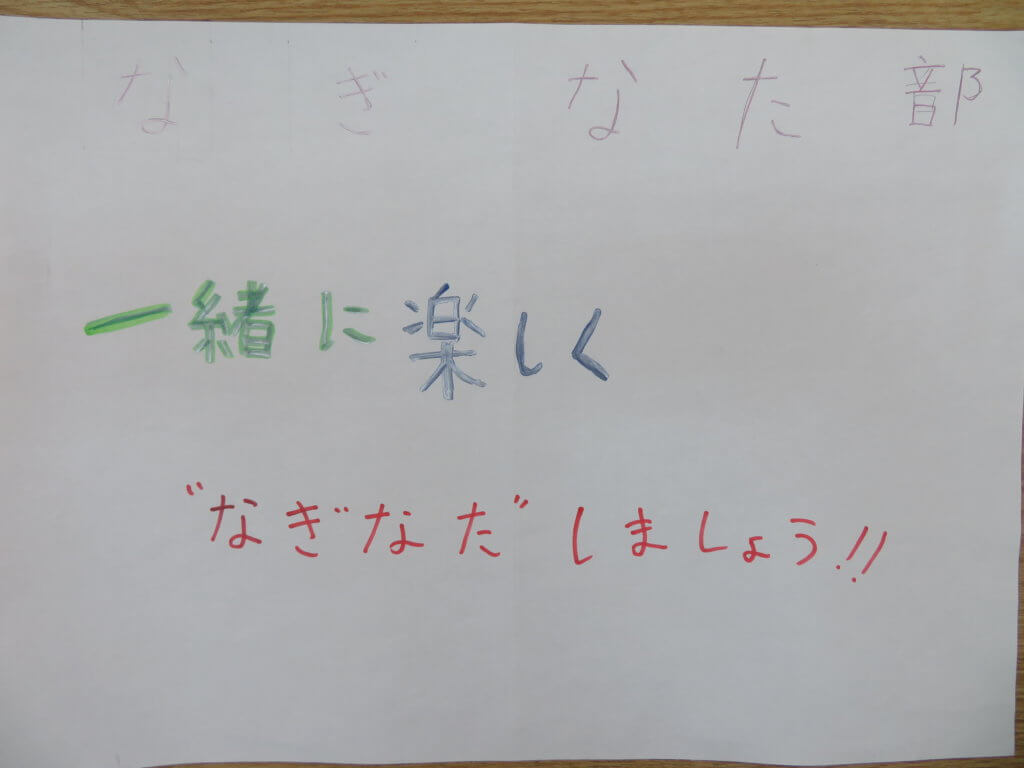 なぎなた部
一緒に楽しく
"なぎなた"しましょう!!